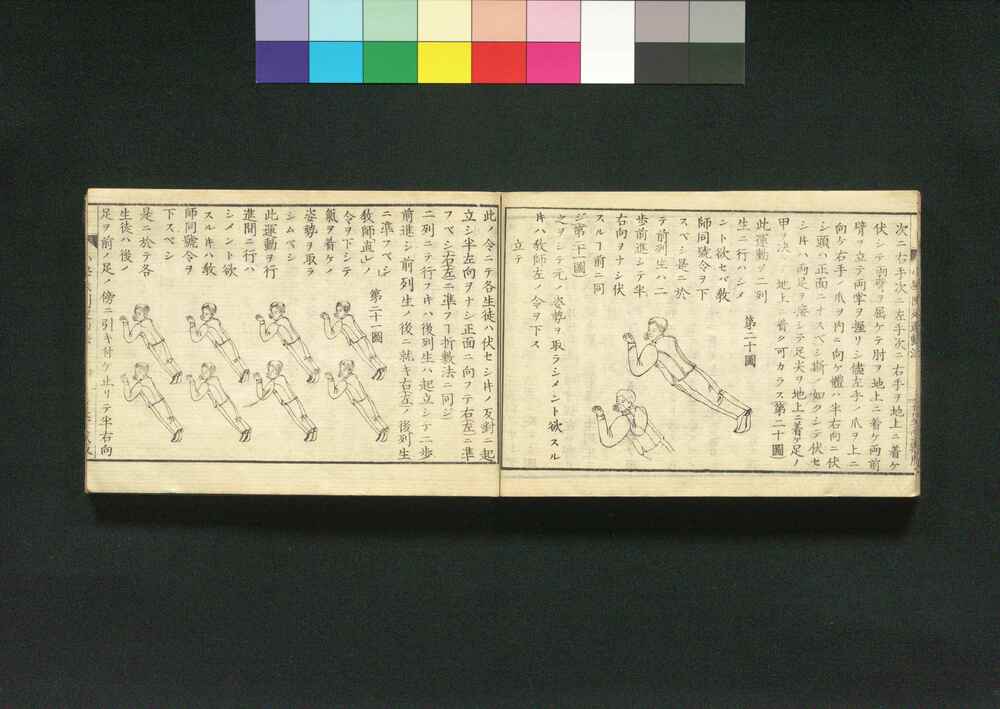 次ニ右手次ニ左手次ニ右手ヲ地上ニ着ケ
伏シテ兩臂ヲ屈ケテ肘ヲ地上ニ着ケ兩前
臂ヲ立テ兩掌ヲ握リシ儘左手ノ爪ヲ上ニ
向ケ右手ノ爪ヲ内ニ向ケ體ハ半右向ニ伏
シ頭ハ正面ニオスベシ斯ノ如クシテ伏セ
シ𬼀ハ兩足ヲ接シテ足尖ヲ地上ニ着ケ足ノ
甲ヲ決シテ地上ニ着ク可カラス(第二十圖)
第二十圖
此運動ヲ二列
生ニ行ハシメ
ント欲セバ教
師同號令ヲ下
スベシ是ニ於
テ前列生ハ二
歩前進シテ半
右向ヲナシ伏
スルヿ前ニ同
ジ(第二十一圖)
之ヲシテ元ノ姿勢ヲ取ラシメント欲スル
𪜈ハ教師左ノ令ヲ下ス
立テ
此ノ令ニテ各生徒ハ伏セシ𪜈ノ反對ニ起
立シ半左向ヲナシ正面ニ向フテ右左ニ準
フベシ右左ニ準フヿ折敷法ニ同ジ
二列ニテ行フ𪜈ハ後列生ハ起立シテ二歩
前進シ前列生ノ後ニ就キ右左ノ後列生
ニ準フベシ
教師直レノ
令ヲ下シテ
氣ヲ着ケノ
姿勢ヲ取ラ
シムベシ
此運動ヲ行
進間ニ行ハ
シメント欲
スル𪜈ハ教
師同號令ヲ
下スベシ
是ニ於テ各
生徒ハ後ノ
足ヲ前ノ足ノ傍ニ引キ付ケ止リテ半右向
第二十一圖